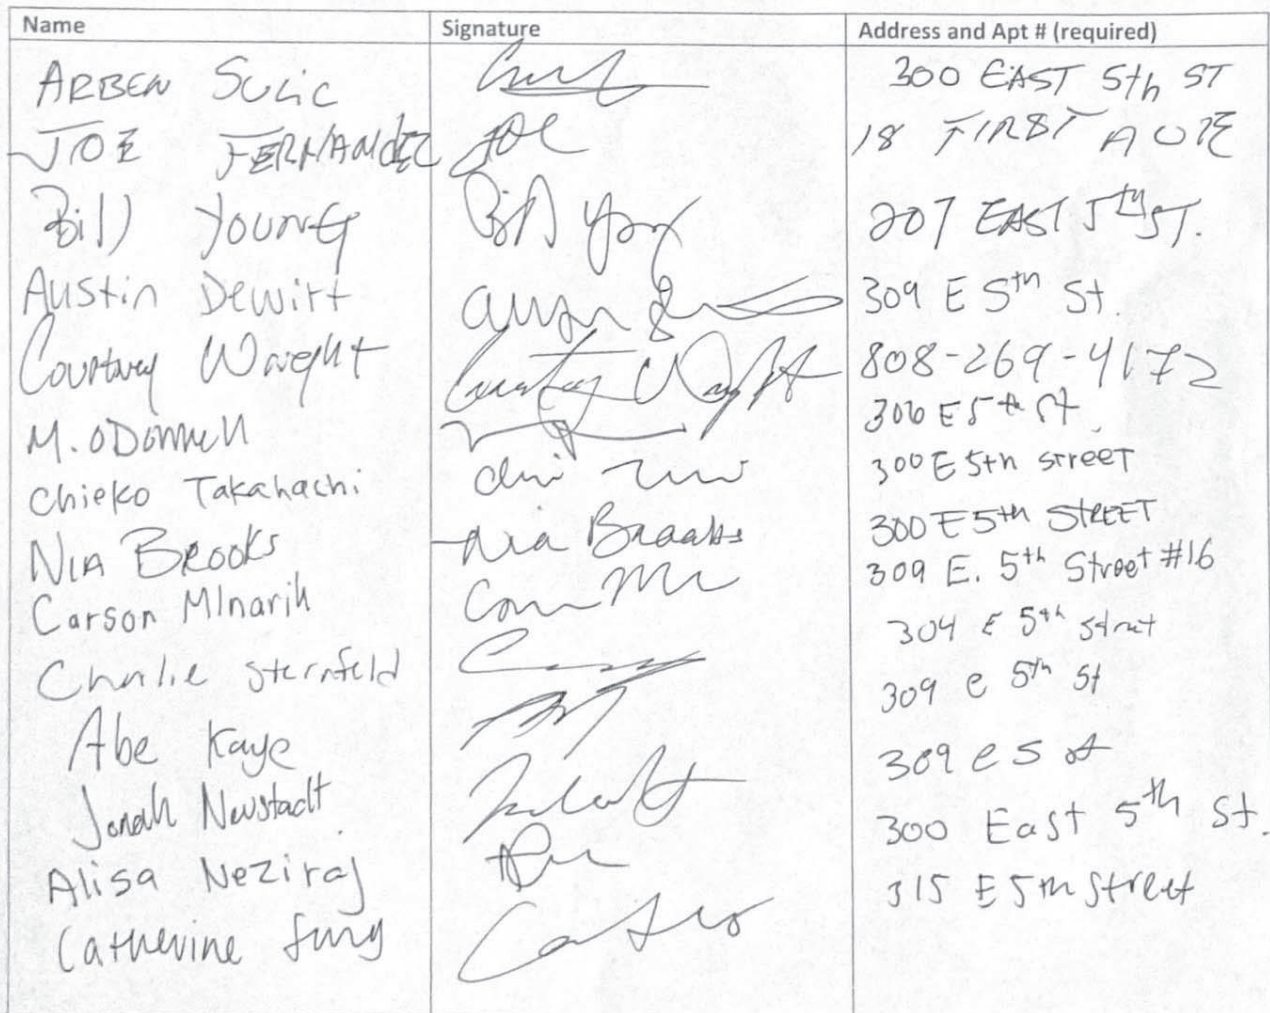 Name Signature Address and Apt # (required)
ARBEN SULIC 300 EAST 5th ST
JOE FERNANDEZ Joe 18 FIRST AVE
Bill Young Bill Young 207 EAST 5TH ST.
Austin Dewitt 309 E 5th St.
Courtney Wright Courtney Wright 808-269-4172
M. ODonnell 306 E 5th St.
Chieko Takahachi 300 E 5th street
NIA BROOKS Nia Brooks 300 E 5th STREET
Carson Mlnarik 309 E. 5th Street #16
Charlie Sternfeld 304 E 5th street
Abe Kaye 309 e 5th St
Jonah Neustadt 309 e 5 st
Alisa Neziraj 300 East 5th St.
Catherine Fung 315 E 5th Street